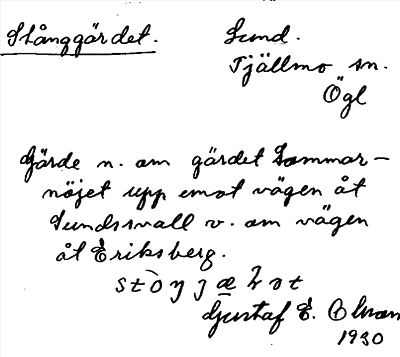 Stånggärdet. Lund.
Tjällmo sn.
Ögl
Gärde n. om gärdet Sommar-
nöjet upp emot vägen åt
Sundsvall v. om vägen
åt Eriksberg.
Gustaf E. Ohman
1930